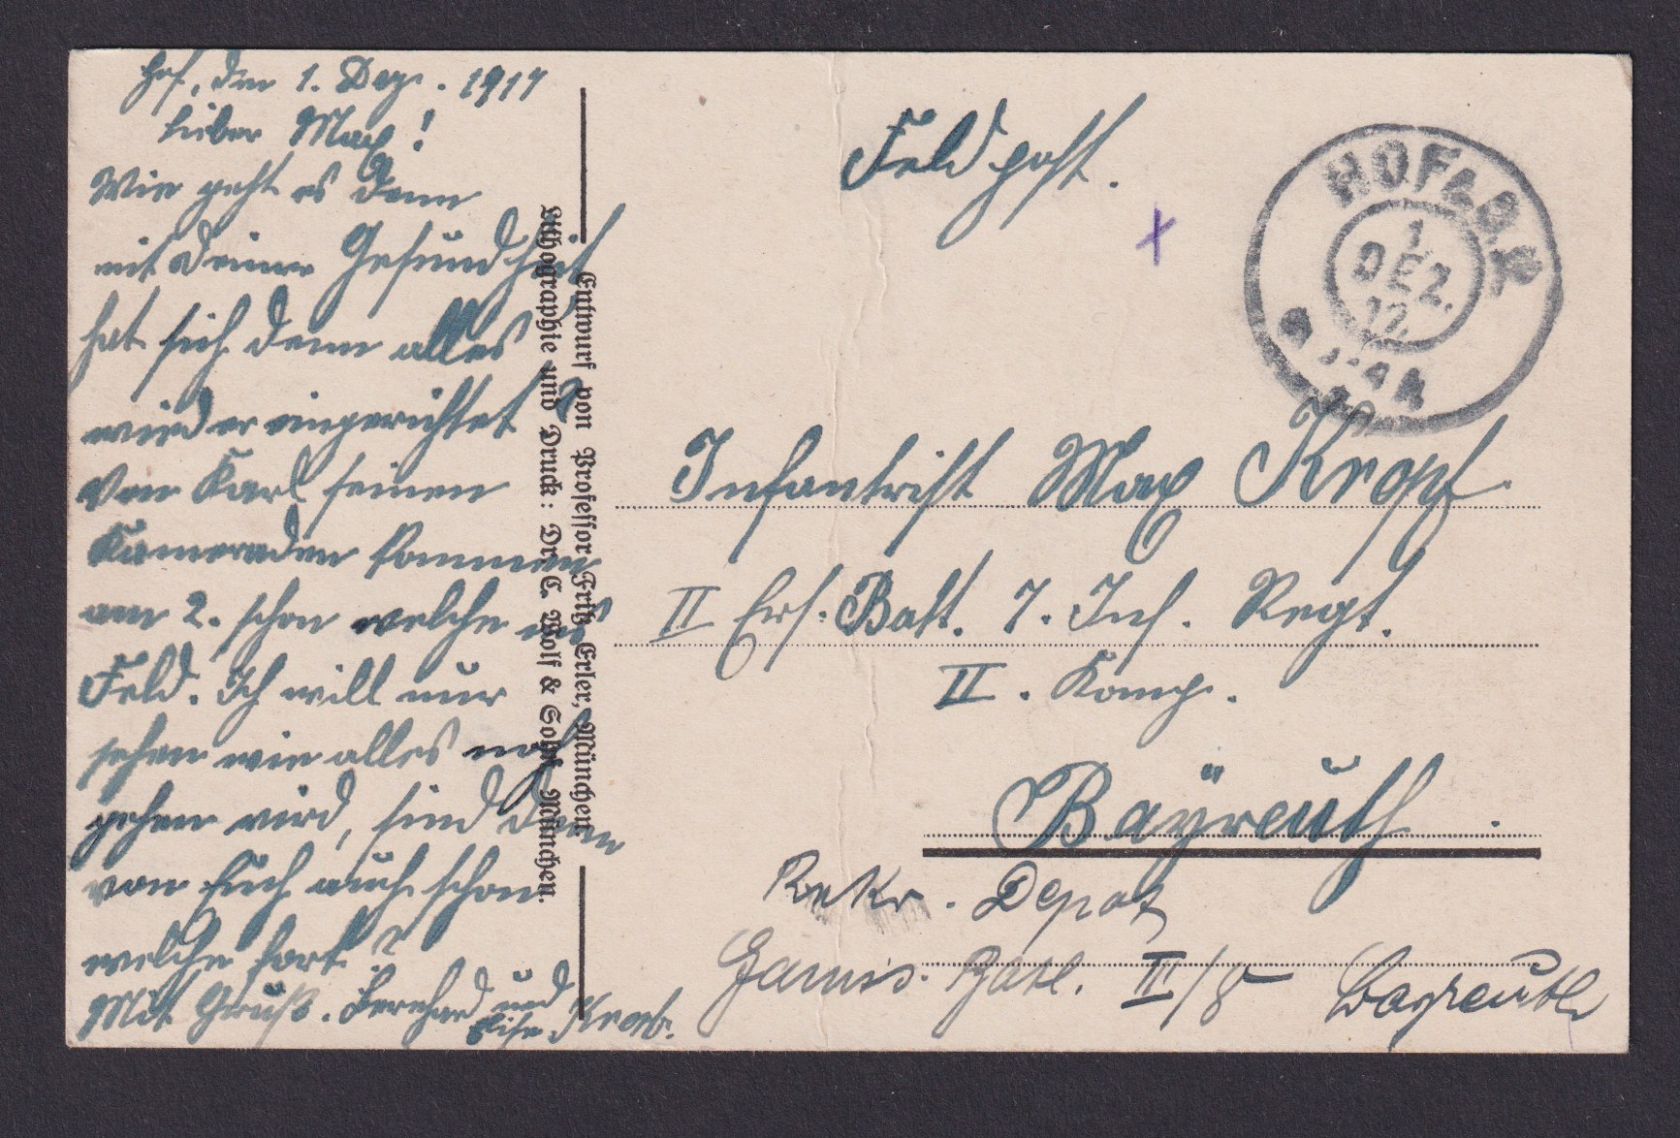 Hof, den 1. Dez. 1917
Lieber Max!
Wie geht es denn
mit deiner Gesundheit
hat sich denn alles
wieder eingerichtet?
Von Karl seinen
Kameraden kommen
am 2. schon welche ins
Feld. Ich will nur
sehen wie alles noch
gehen wird, sind denn
von Euch auch schon
welche fort?
Mit Gruß. Bernhard und
Elise
Entwurf von Professor Fritz Erler, München
Lithographie und Druck: Dr. C. Wolf & Sohn München.
Feldpost.
HOF
1
DEZ.
17.
Infantrist Max Kropf
II Ers. Batt. 7. Inf. Regt.
II. Komp.
Bayreuth.
Rekr. Depot
Garnis. Batl. II/8 Bayreuth